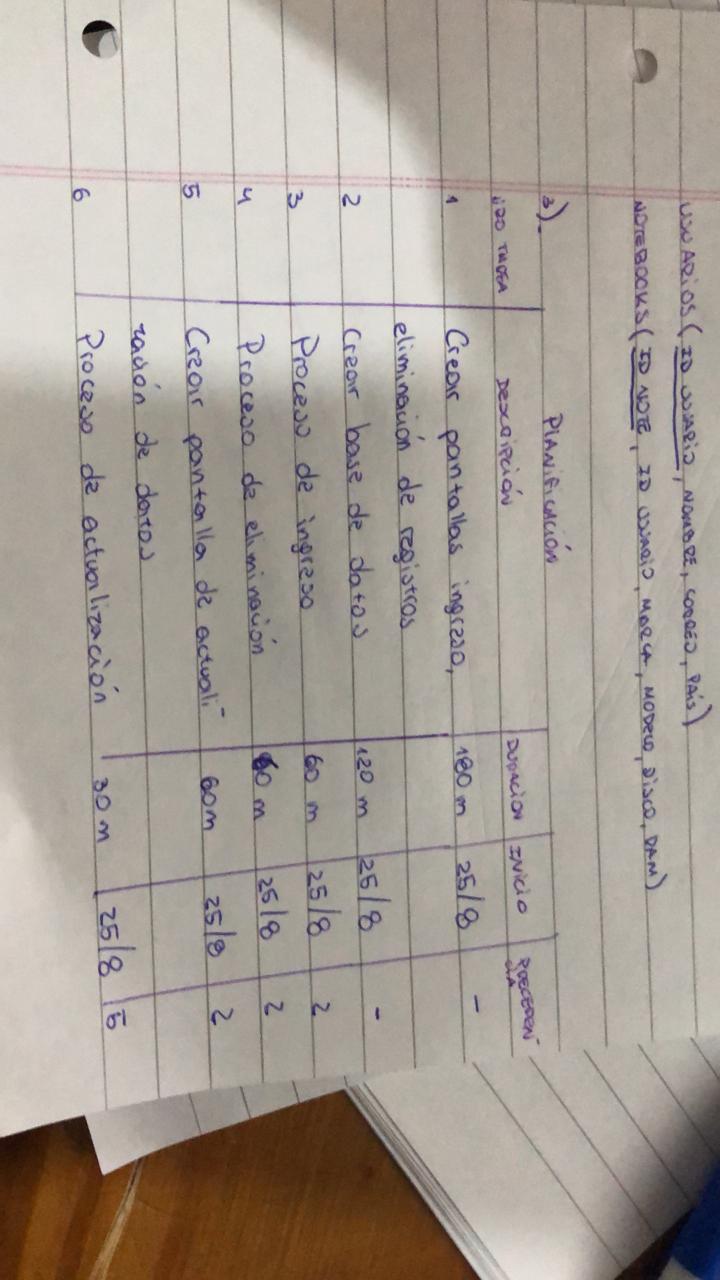 USUARIOS (ID USUARIO, NOMBRE, CORREO, PAÍS)
NOTEBOOKS (ID NOTE, ID USUARIO, MARCA, MODELO, DISCO, RAM)
3).- PLANIFICACIÓN
TAREA DESCRIPCIÓN DURACION INICIO PRECEDEN
CIA
1 Crear pantallas ingreso, 180 m 25/8 -
eliminación de registros
2 Crear base de datos 120 m 25/8 -
3 Proceso de ingreso 60 m 25/8 2
4 Proceso de eliminación 60 m 25/8 2
5 Crear pantalla de actuali- 60m 25/8 2
zación de datos
6 Proceso de actualización 30 m 25/8 5